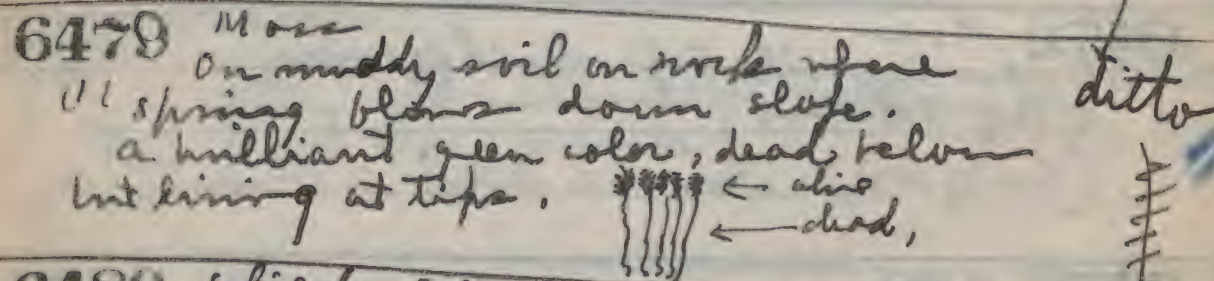 6479 Moss
On muddy soil on rock where ditto
"" spring flows down slope.
a brilliant green color, dead below
but living at tips. ← alive
← dead,